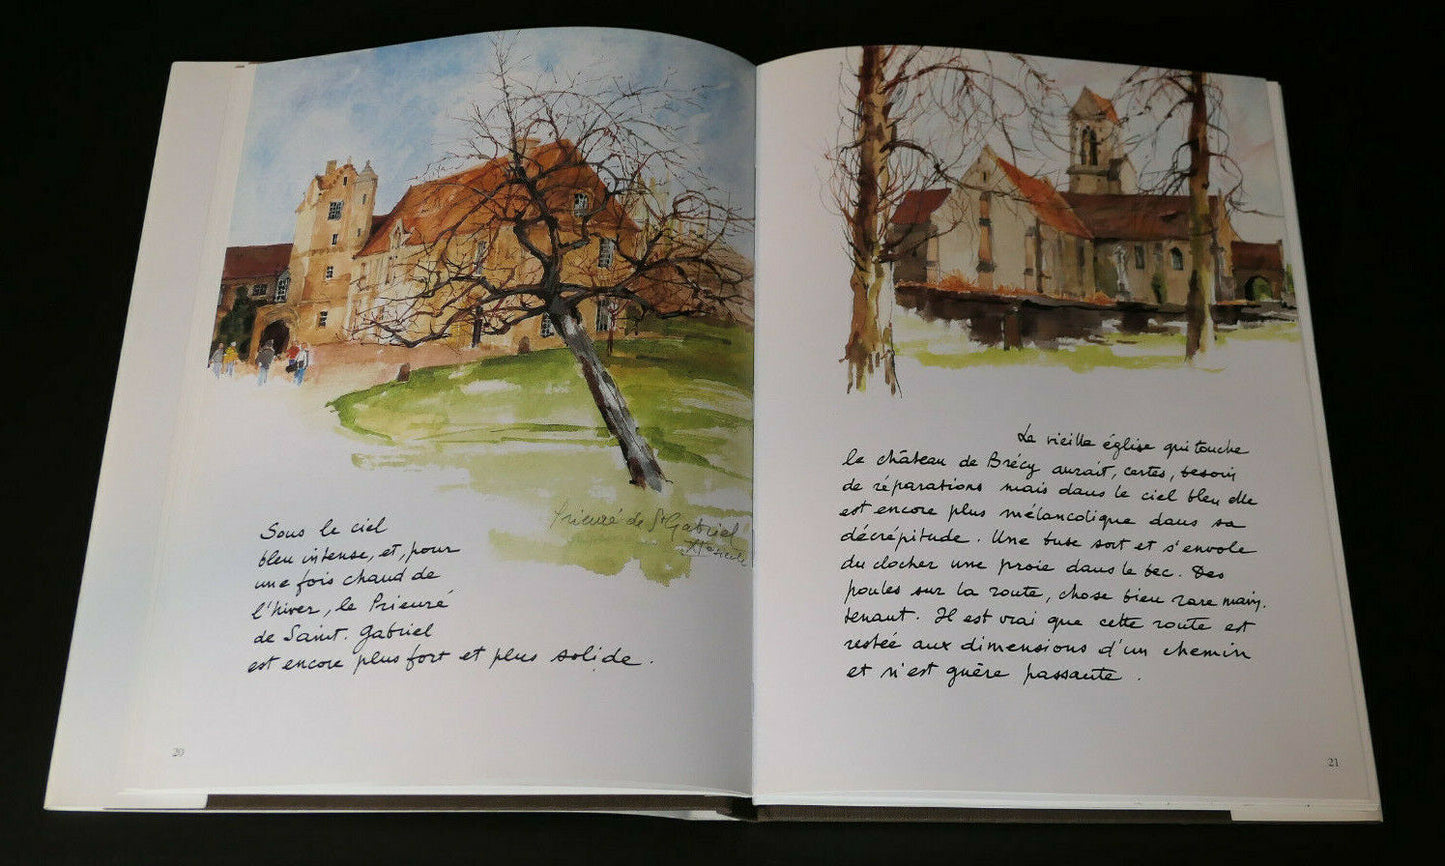 Prieuré de St Gabriel
Sous le ciel
bleu intense, et, pour
une fois chaud de
l'hiver, le Prieuré
de Saint. Gabriel
est encore plus fort et plus solide.
20
La vieille église qui touche
le château de Brécy aurait, certes, besoin
de réparations mais dans le ciel bleu elle
est encore plus mélancolique dans sa
décrépitude. Une buse sort et s'envole
du clocher une proie dans le bec. Des
poules sur la route, chose bien rare main.
tenant. Il est vrai que cette route est
restée aux dimensions d'un chemin
et n'est guère passante.
21